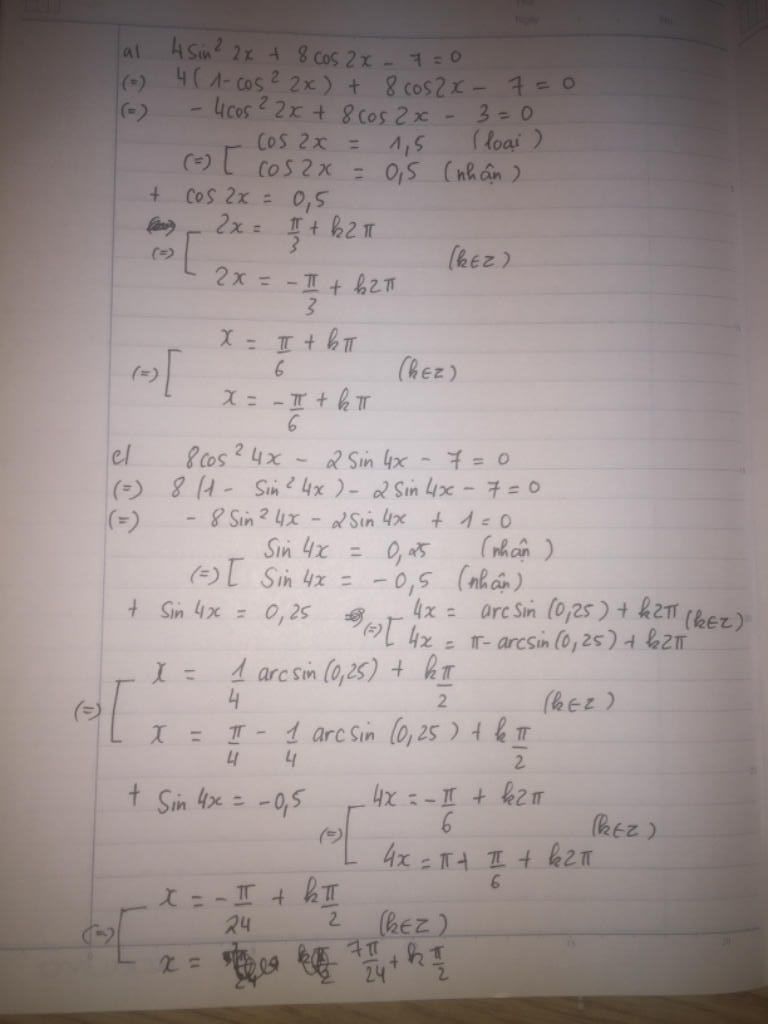 a) 4 sin² 2x + 8 cos 2x - 7 = 0
(=) 4(1 - cos² 2x) + 8 cos2x - 7 = 0
(=) - 4cos² 2x + 8 cos 2x - 3 = 0
(=) [ cos 2x = 1,5 (loại)
cos 2x = 0,5 (nhận)
+ cos 2x = 0,5
(=) [ 2x = π/3 + k2π
2x = -π/3 + k2π (k∈z)
(=) [ x = π/6 + kπ
x = -π/6 + kπ (k∈z)
c) 8cos² 4x - 2 sin 4x - 7 = 0
(=) 8 (1 - sin² 4x) - 2 sin 4x - 7 = 0
(=) - 8 sin² 4x - 2 sin 4x + 1 = 0
(=) [ sin 4x = 0,25 (nhận)
sin 4x = - 0,5 (nhận)
+ sin 4x = 0,25 (=) [ 4x = arcsin (0,25) + k2π (k∈z)
4x = π - arcsin (0,25) + k2π
(=) [ x = 1/4 arcsin (0,25) + kπ/2
x = π/4 - 1/4 arcsin (0,25) + k π/2 (k∈z)
+ sin 4x = -0,5 (=) [ 4x = -π/6 + k2π
4x = π + π/6 + k2π (k∈z)
(=) [ x = -π/24 + kπ/2
x = 7π/24 + k π/2 (k∈z)